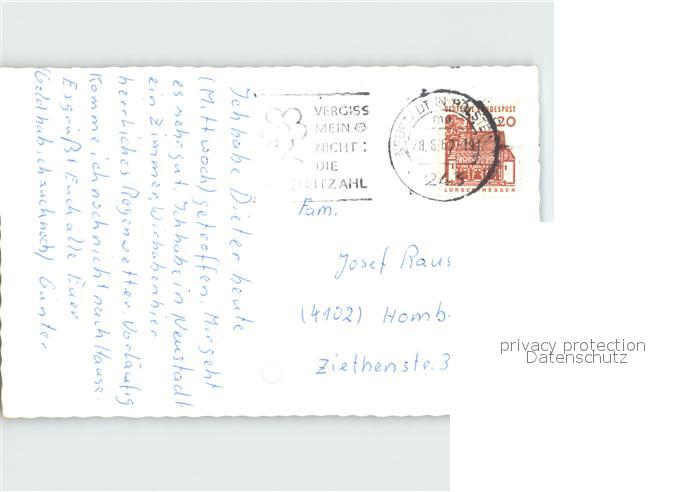 Ich habe Dieter heute
(Mittwoch) getroffen. Mir geht
es sehr gut. Ich habe in Neustadt
ein Zimmer. Wir haben hier
herrliches Regenwetter. Vorläufig
komme ich noch nicht nach Hause.
Es grüßt Euch alle Euer
Günter
(Geld hab ich auch noch)
VERGISS
MEIN
NICHT:
DIE
EITZAHL
NEUSTADT IN HOLSTE
28.6.6
245
DEUTSCHE BUNDESPOST
20
LORSCH/HESSEN
Fam.
Josef Raus
(4102) Homb
Ziethenstr. 3
privacy protection
Datenschutz